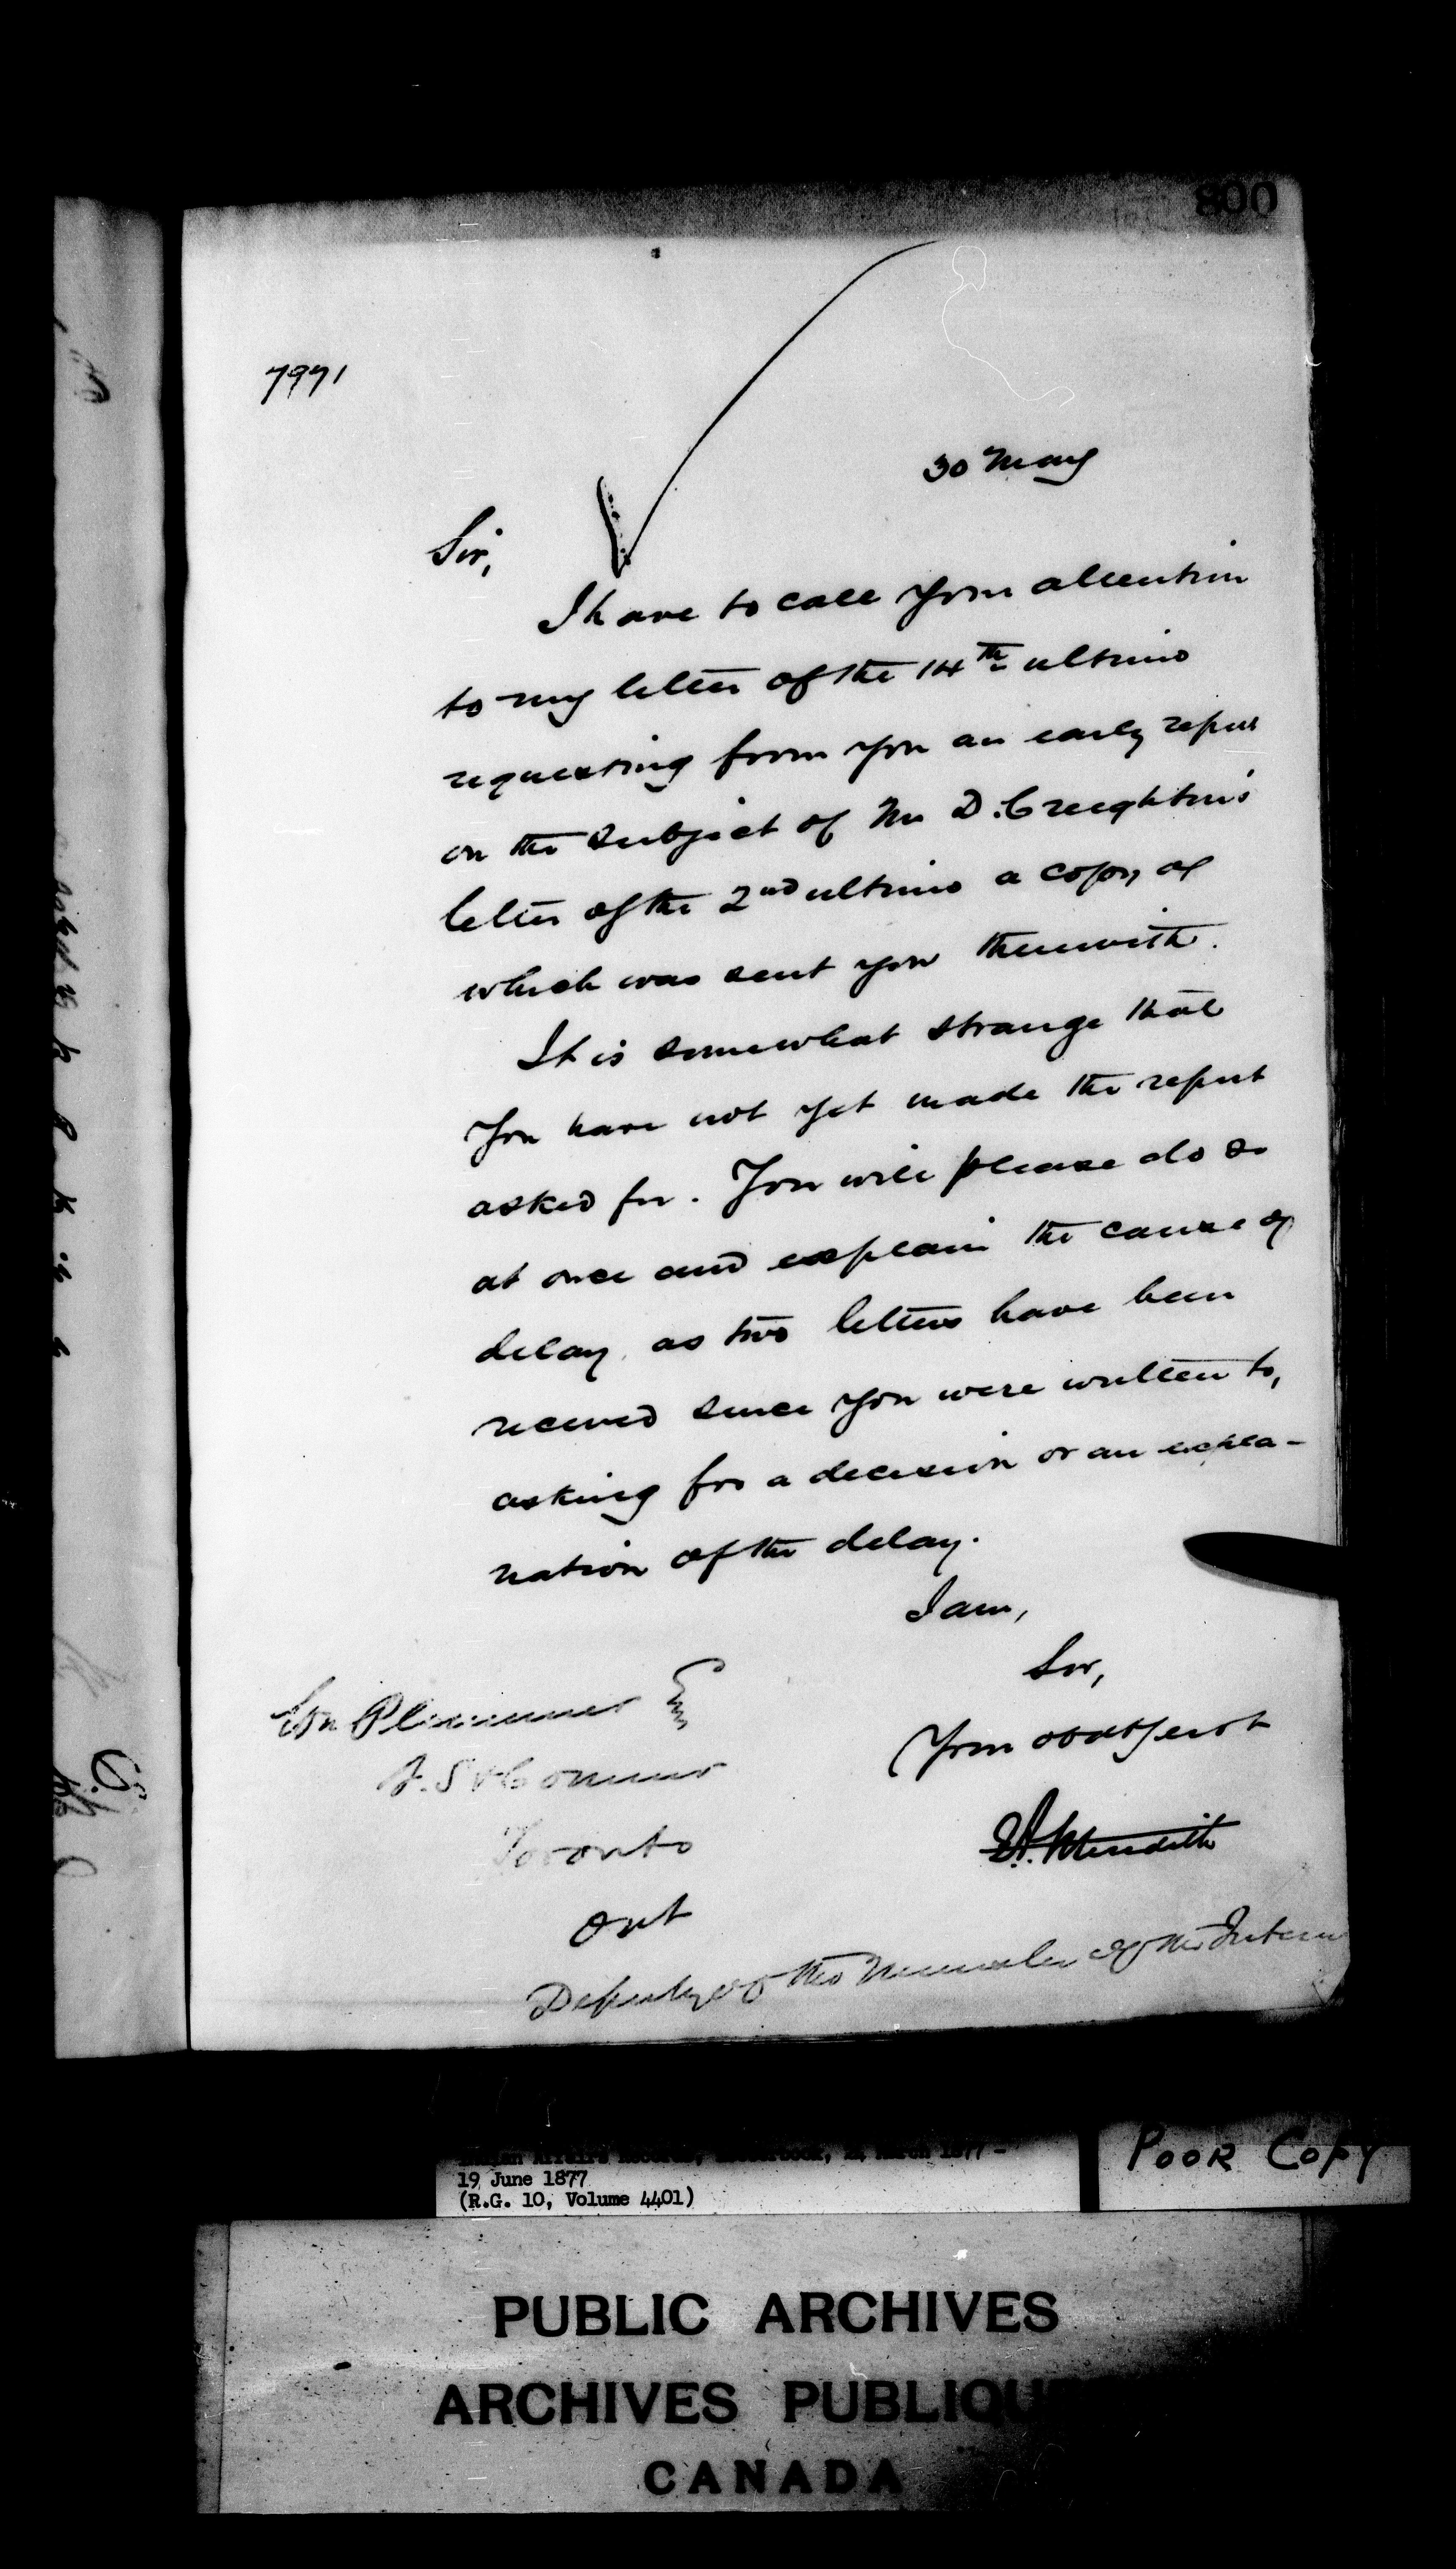 800
7971
30 May
Sir,
I have to call your attention
to my letter of the 14th ultimo
requesting from you an early report
on the subject of Mr D. Creighton's
letter of the 2nd ultimo a copy of
which was sent you therewith.
It is somewhat strange that
you have not yet made the report
asked for. You will please do so
at once and explain the cause of
delay, as two letters have been
received since you were written to,
asking for a decision or an expla-
nation of the delay.
I am,
Sir,
Your obdt servt
E.A. Meredith
Plummer Esq
Toronto
Ont
Deputy of the Minister of the Interior
Indian Affairs Records, Letterbook, March 1877 -
19 June 1877
(R.G. 10, Volume 4401)
POOR COPY
PUBLIC ARCHIVES
ARCHIVES PUBLIQU
CANADA